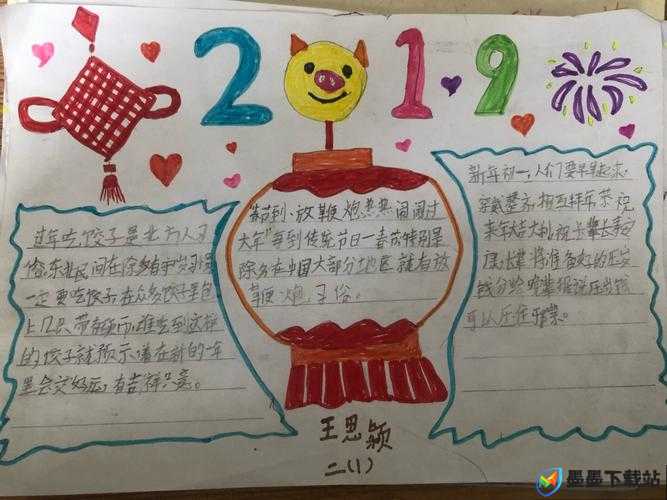 2019
过年吃饺子是北方人习
俗,东北民间在除夕有守岁习惯
一定要吃饺子在众多饺子里包
上几只带有硬币,谁吃到这样
的饺子就预示着在新的一年
里会交好运,有吉祥之意。
春节到、放鞭炮热热闹闹过
大年"每到传统节日一春节特别是
除夕在中国大部分地区就有放
鞭炮习俗。
新年初一,人们要早早起来
穿戴整齐相互拜年恭祝
来年大吉大利祝长辈长寿安
康,长辈将准备好的压岁
钱分给晚辈据说压岁钱
可以压住邪祟。
王思颖
二(1)
墨墨下载站